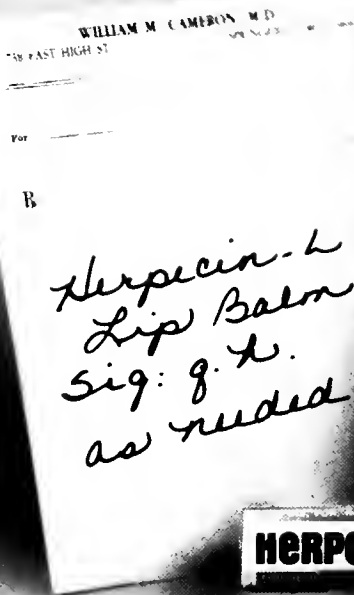 WILLIAM M CAMERON M D
EAST HIGH ST
For
R
Herpecin-L
Lip Balm
Sig: q.h.
as needed
HERPE